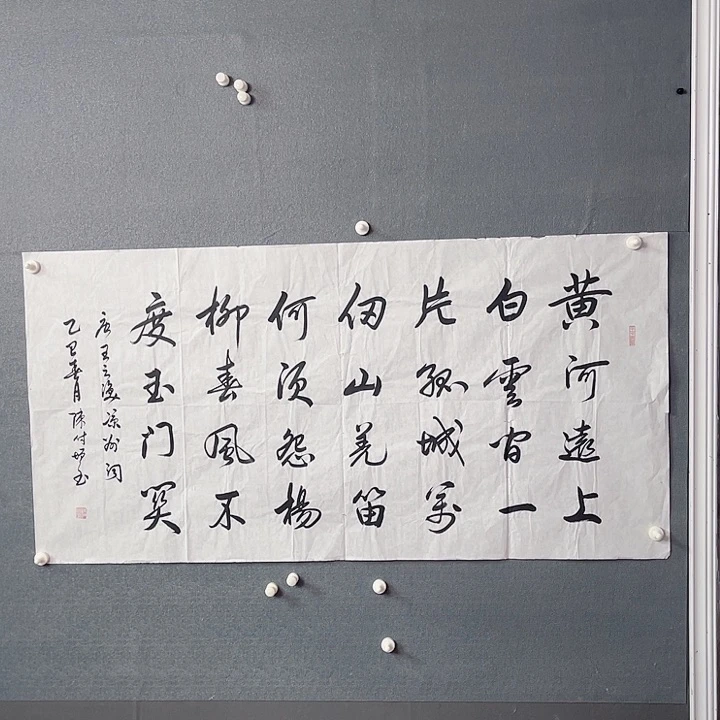 黄河遠上
白雲间一
片孤城萬
仞山羌笛
何须怨楊
柳春風不
度玉门関
唐王之涣凉州词
乙巳春月陈付书